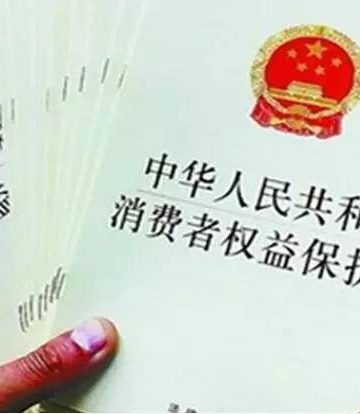 中华人民共和
消费者权益保护